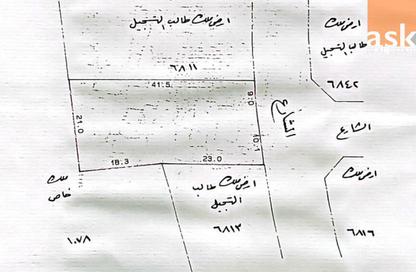 ask
ارض ملك طالب التسجيل
٦٨١١
ارض ملك
طالب التسجيل
٦٨٤٢
41.5
9.0
21.0
10.1
الشارع
الشارع
18.3
23.0
ملك
خاص
١٠٧٨
ارض ملك طالب
التسجيل
٦٨١٣
ارض ملك
٦٨١٦